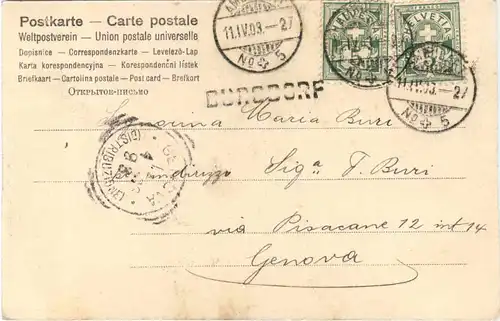 Postkarte — Carte postale
Weltpostverein — Union postale universelle
Dopisnice — Correspondenzkarte — Levelező-Lap
Karta korespondencyjna — Korespondenční lístek
Briefkaart — Cartolina postale — Post card — Brefkort
Открытое-письмо
11.IV.03.–27
No 5
HELVETIA
11.IV.03.–27
No 5
BURGDORF
Signorina Maria Buri
GENOVA
(DISTRIBUZIONE)
Indirizzo Sigª T. Buri
via Pisacane 12 int 14
Genova